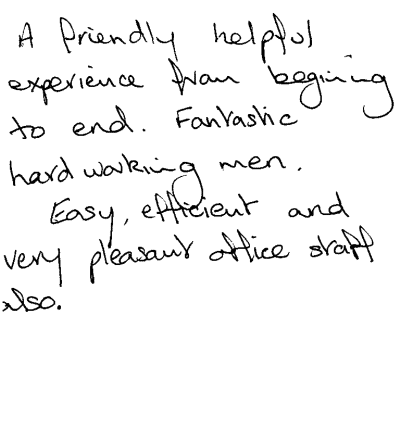 A friendly helpful
experience from begining
to end. Fantastic
hard working men.
Easy, efficient and
very pleasant office staff
also.